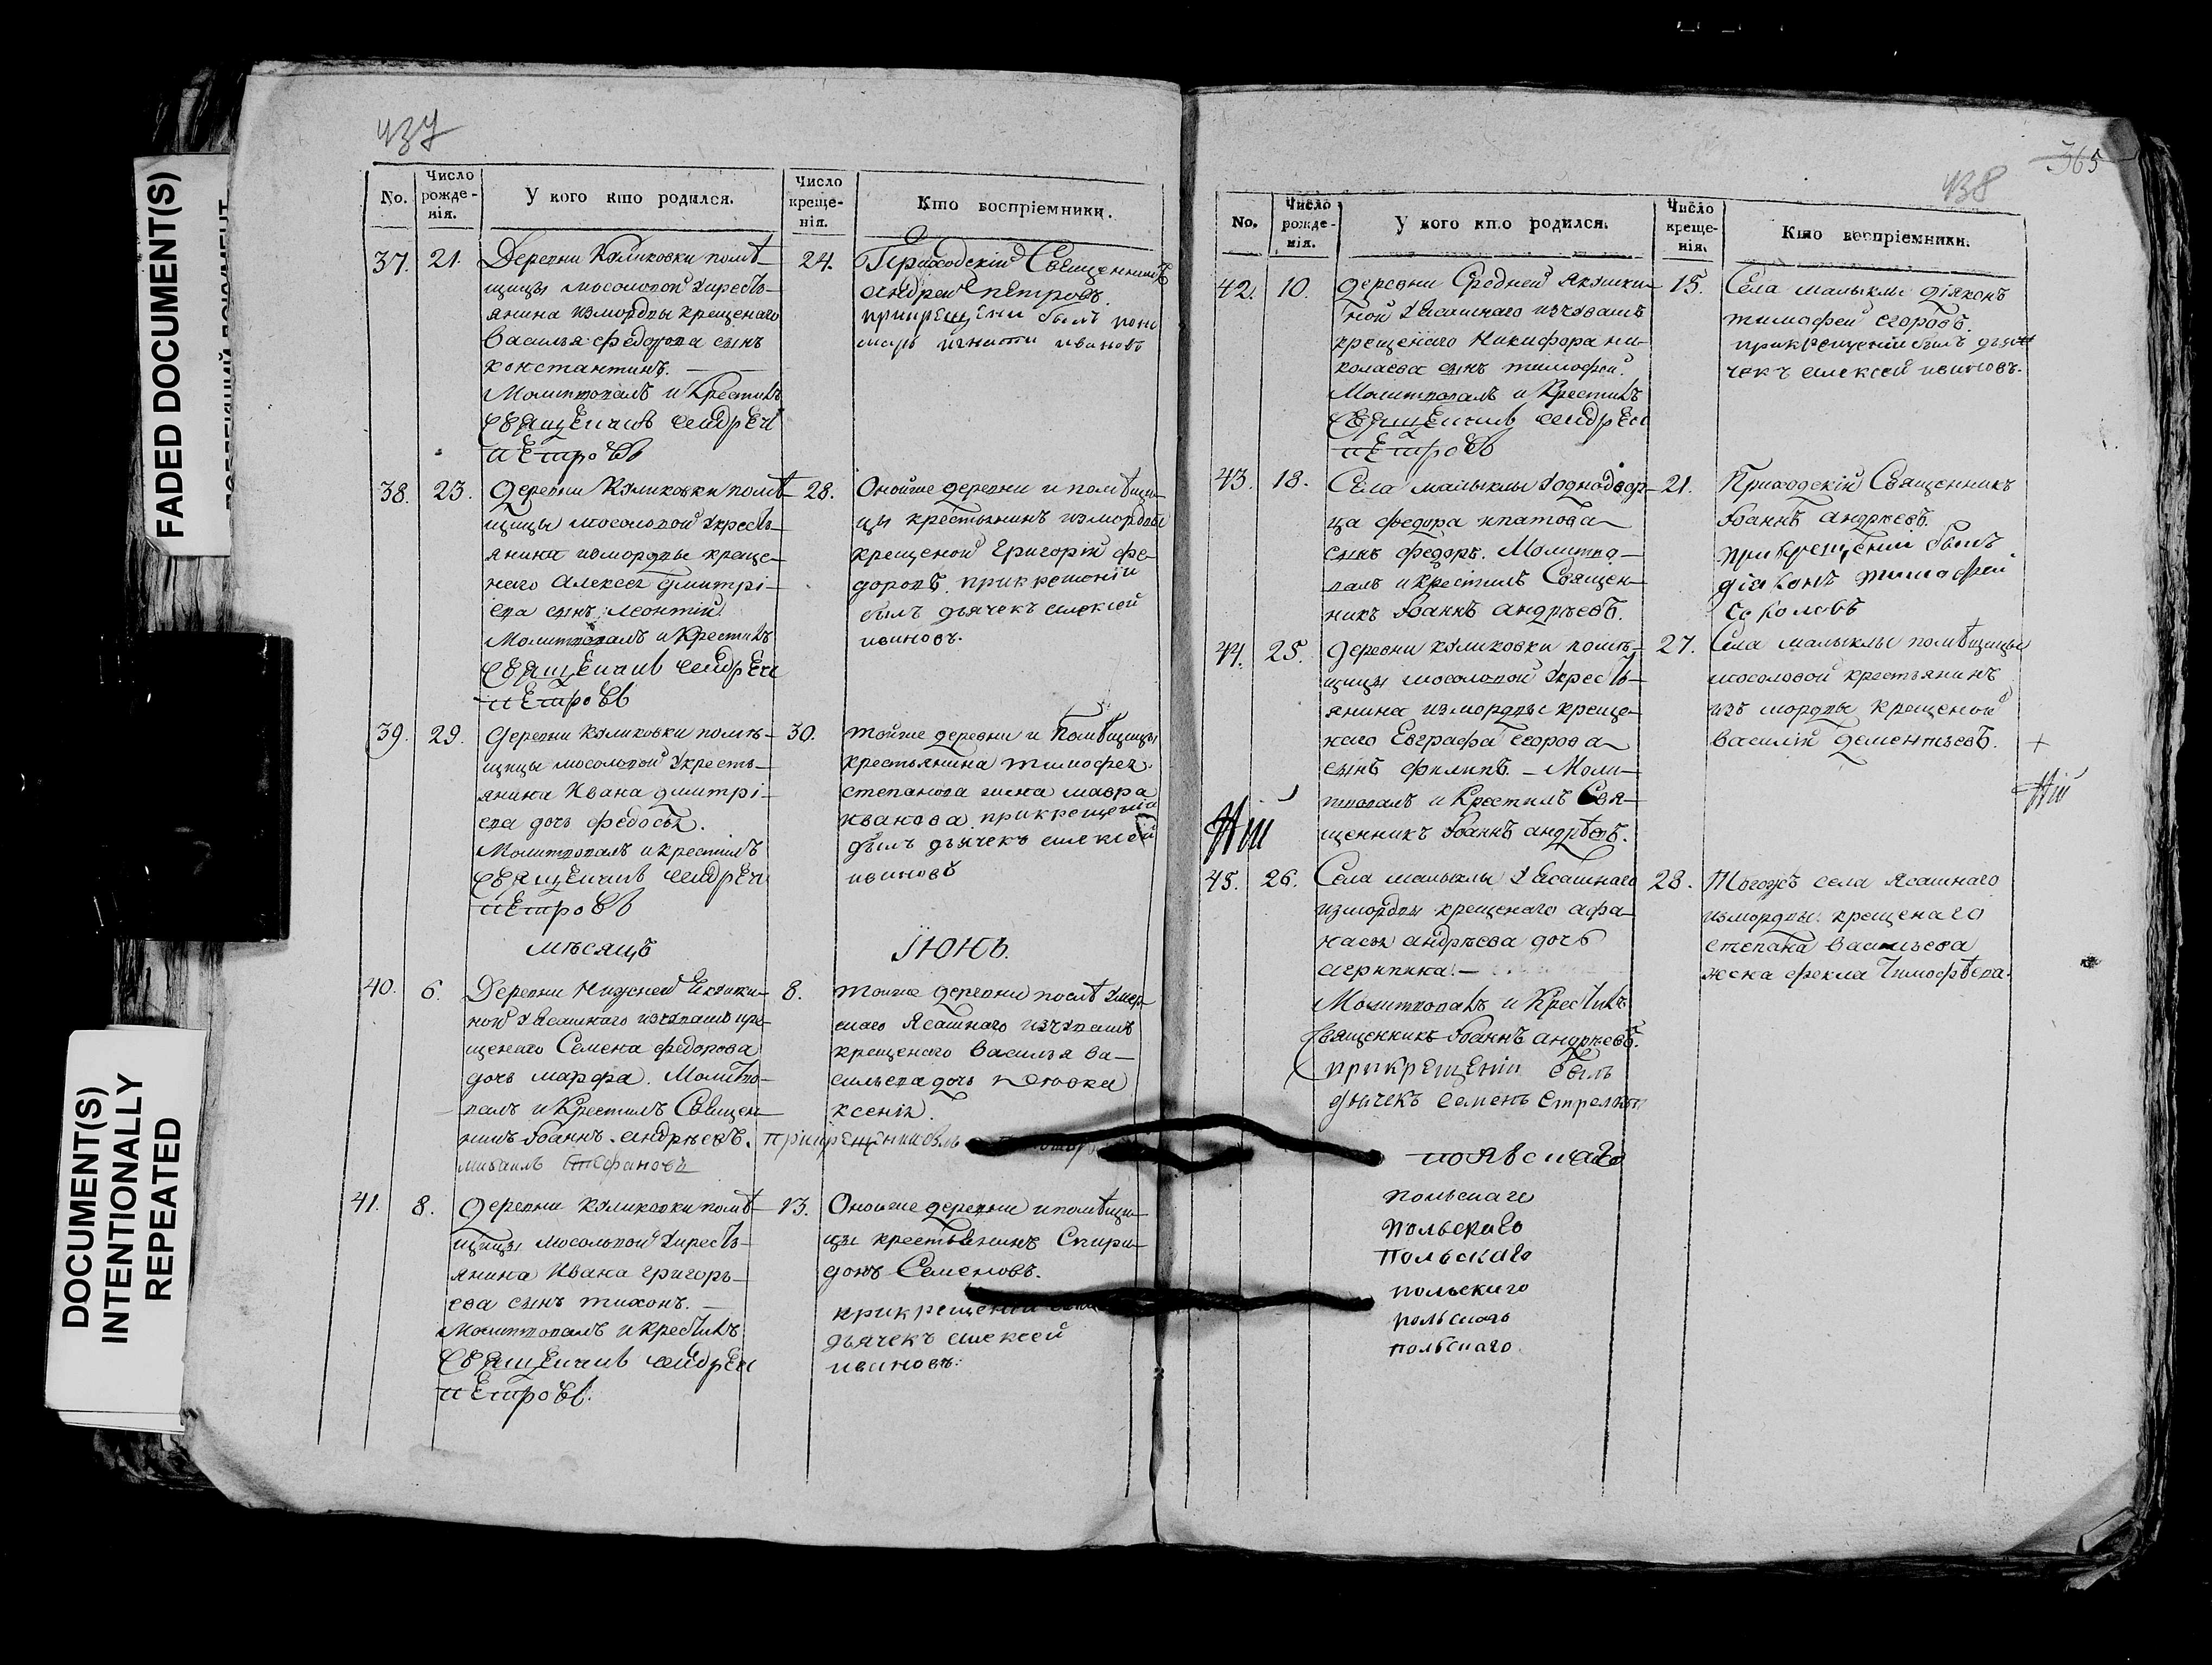 FADED DOCUMENT(S)
DOCUMENT(S)
INTENTIONALLY
REPEATED
437
No.
Число
рожде-
нія.
У кого кто родился.
Число
креще-
нія.
Кто воспріемники.
37.
21.
Деревни Куликовки помѣ-
щицы Мосоловой укресть-
янина измордвы крещенаго
Василья федорова сынъ
константинъ.
Молитвовалъ и Крестилъ
Священникъ Андрей
Петровъ
24.
Приходскій Священникъ
Андрей Петровъ.
прикрещени былъ поно
марь игнати ивановъ
38.
23.
деревни Куликовки помѣ-
щицы Мосоловой укресть-
янина измордвы креще-
наго Алексея дмитрі-
ева сынъ леонтій
Молитвовалъ и Крестилъ
Священникъ Андрей
Петровъ
28.
Онойже деревни и помѣщи-
цы крестьянинъ измордвы
крещеной Григорій фе-
доровъ. прикрещеніи
былъ дьячекъ алексей
ивановъ.
39.
29.
деревни Куликовки помѣ-
щицы мосоловой укресть-
янина Ивана дмитрі-
ева дочь федосья.
Молитвовалъ и крестилъ
Священникъ Андрей
Петровъ
30.
тойже деревни и Помѣщицы
крестьянина тимофея
степанова жена мавра
иванова. прикрещеніи
былъ дьячекъ алексей
ивановъ
мѣсяцъ
Iюнь.
40.
6.
Деревни Нижней Якушки-
ной уясашнаго изчувашъ кре-
щенаго Семена федорова
дочь марфа. Молитво-
валъ и Крестилъ Священ-
никъ Iоаннъ андрѣевъ.
михаилъ Стефановъ
8.
тойже деревни послѣ умер-
шаго Ясашнаго изчувашъ
крещенаго Василья ва-
сильева дочь девка
ксенія.
41.
8.
деревни Куликовки помѣ-
щицы мосоловой укресть-
янина Ивана григорь-
ева сынъ тихонъ.
Молитвовалъ и Крестилъ
Священникъ Андрей
Петровъ.
13.
Онойже деревни и помѣщи-
цы крестьянинъ Спири-
донъ Семеновъ.
прикрещеніи
дьячекъ алексей
ивановъ.
365
438
No.
Число
рожде-
нія.
У кого кто родился.
Число
креще-
нія.
Кто воспріемники.
42.
10.
деревни Средней Якушки-
ной уясашнаго изчувашъ
крещенаго Никифора ни-
колаева сынъ тимофей.
Молитвовалъ и Крестилъ
Священникъ Андрей
Петровъ
15.
Села малыклы діяконъ
тимофей егоровъ.
прикрещеніи былъ дья
чекъ алексей ивановъ.
43.
18.
Села малыклы уоднодвор-
ца федора ипатова
сынъ федоръ. Молитво-
валъ и крестилъ Священ-
никъ Iоаннъ андрѣевъ.
21.
Приходскій Священникъ
Iоаннъ андрѣевъ.
прикрещеніи былъ
діаконъ тимофей
Соколовъ
44.
25.
деревни куликовки помѣ-
щицы мосоловой укресть-
янина измордвы креще-
наго Евграфа егорова
сынъ филипъ. - Моли-
твовалъ и Крестилъ Свя-
щенникъ Iоаннъ андрѣевъ.
27.
Села малыклы помѣщицы
мосоловой крестьянинъ
изъ мордвы крещеной
василій дементьевъ.
+
45.
26.
Села малыклы уясашнаго
измордвы крещенаго афа-
насья андрѣева дочь
агрипина. -
Молитвовалъ и Крестилъ
Священникъ Iоаннъ андрѣевъ.
прикрещеніи былъ
дьячекъ семенъ Стрелковъ
28.
Тогожъ села ясашнаго
измордвы крещенаго
степана васильева
жена фекла Тимофѣева.
польскаго
польскаго
Польскаго
Польскаго
польскаго
польскаго
польскаго.